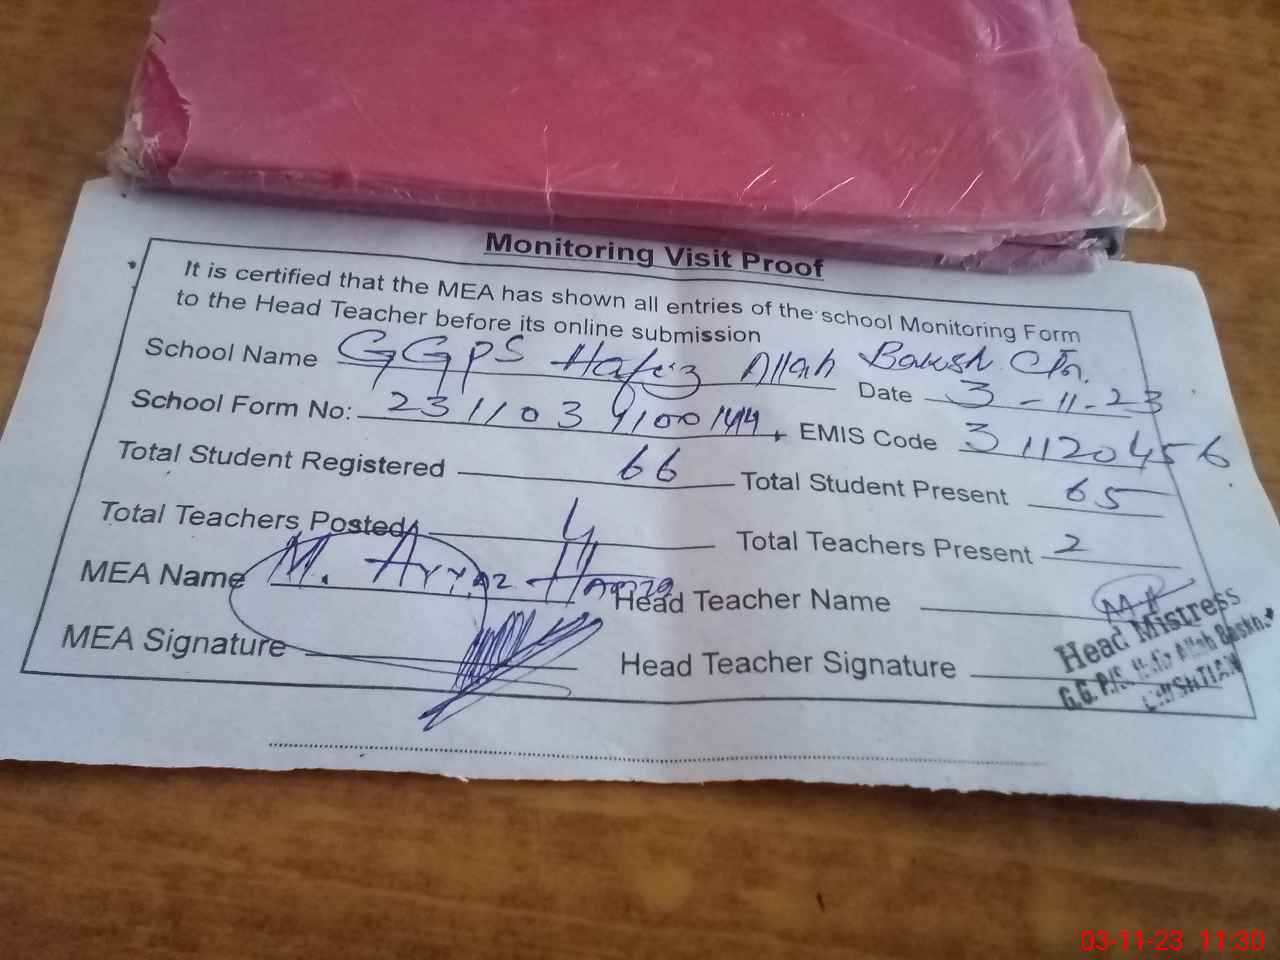 Monitoring Visit Proof
It is certified that the MEA has shown all entries of the school Monitoring Form
to the Head Teacher before its online submission
School Name GGPS Hafiz Allah Baksh Ctn. Date 3-11-23
School Form No: EMIS Code 31120456
Total Student Registered 66 Total Student Present 65
Total Teachers Posted 4 Total Teachers Present 2
MEA Name M. Head Teacher Name
MEA Signature Head Teacher Signature
Head Mistress
G.G. P/S Hafiz Allah Bakhsh
CHISHTIAN
03-11-23 11:30